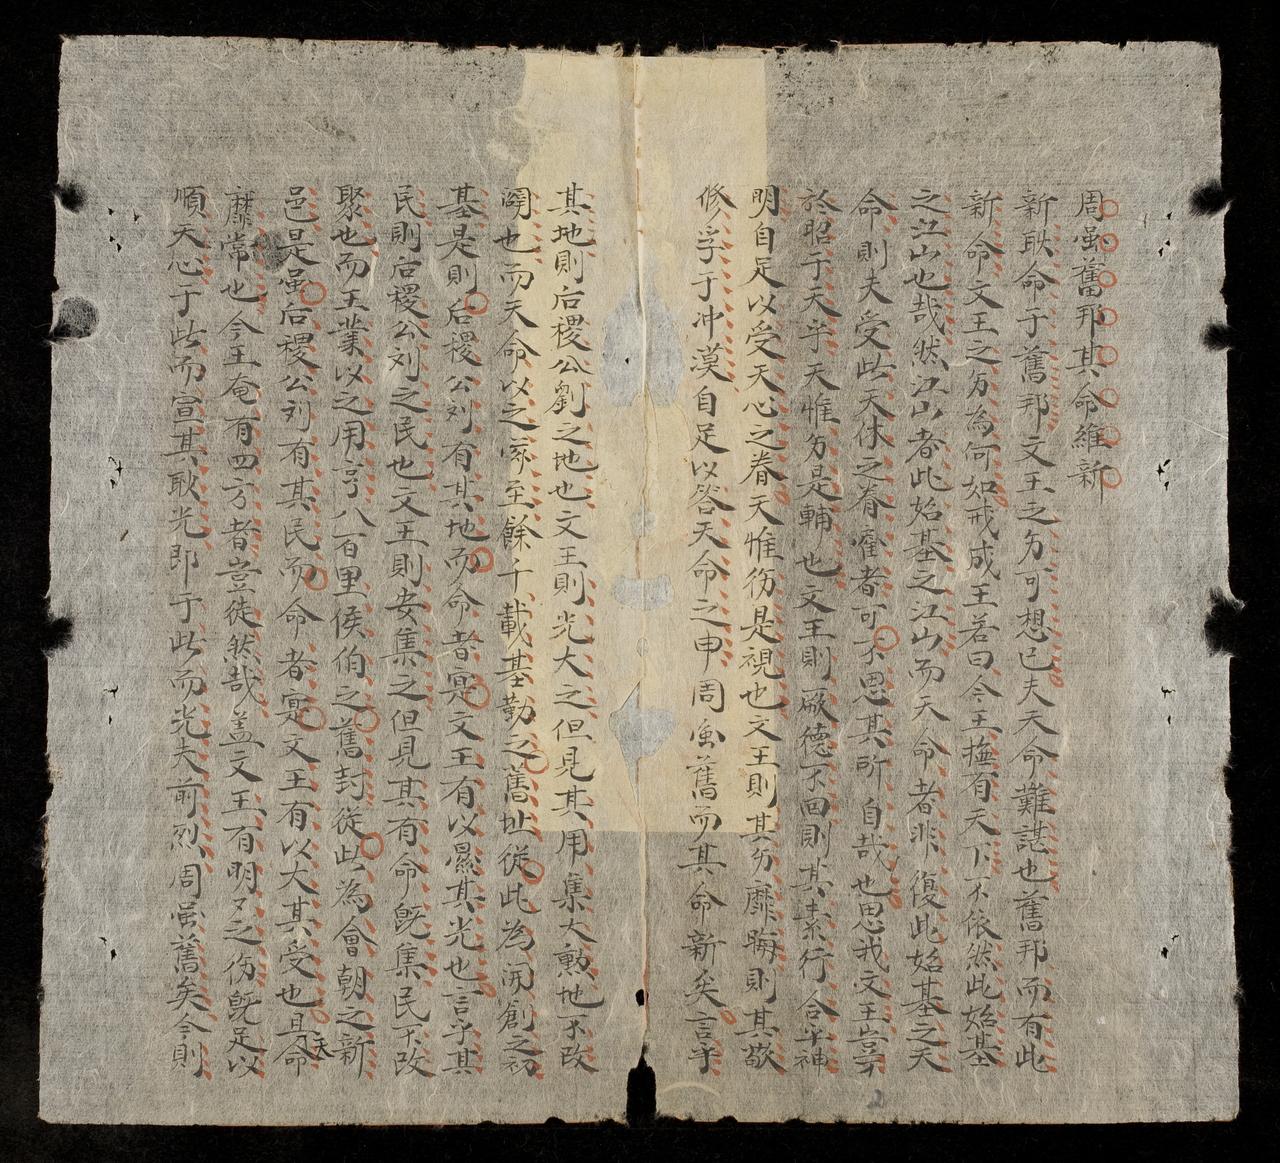 周虽舊邦其命維新
新耿命于舊邦文王之匇可想已夫天命難諶也舊邦而有此
新命文王之匇為何如哉成王若曰今王撫有天下不依然此始基
之江山也哉然江山者此始基之江山而天命者非復此始基之天
命則夫受此天休之眷者可不思其所自哉也思我文王
於昭于天乎天惟匇是輔也文王則厥德不回則其素行合乎神
明自足以受天心之眷天惟是視也文王則其匇靡晦則其敬
修孚于冲漠自足以答天命之申周虽舊而其命新矣言乎
其地則后稷公劉之地也文王則光大之但見其用集大勲地不改
闢也而天命以之至餘千載基勤之舊址從此為開創之初
基是則后稷公刘有其地而命者寔文王有以顯其光也言乎其
民則后稷公刘之民也文王則安集之但見其有命既集民不改
聚也而王業以之用亨八百里侯伯之舊封從此為會朝之新
邑是虽后稷公刘有其民而命者寔文王有以大其受也是天命
靡常也今王奄有四方者豈徒然哉盖文王有明々之既足以
順天心于此而宣其耿光即于此而光夫前烈周虽舊矣今則